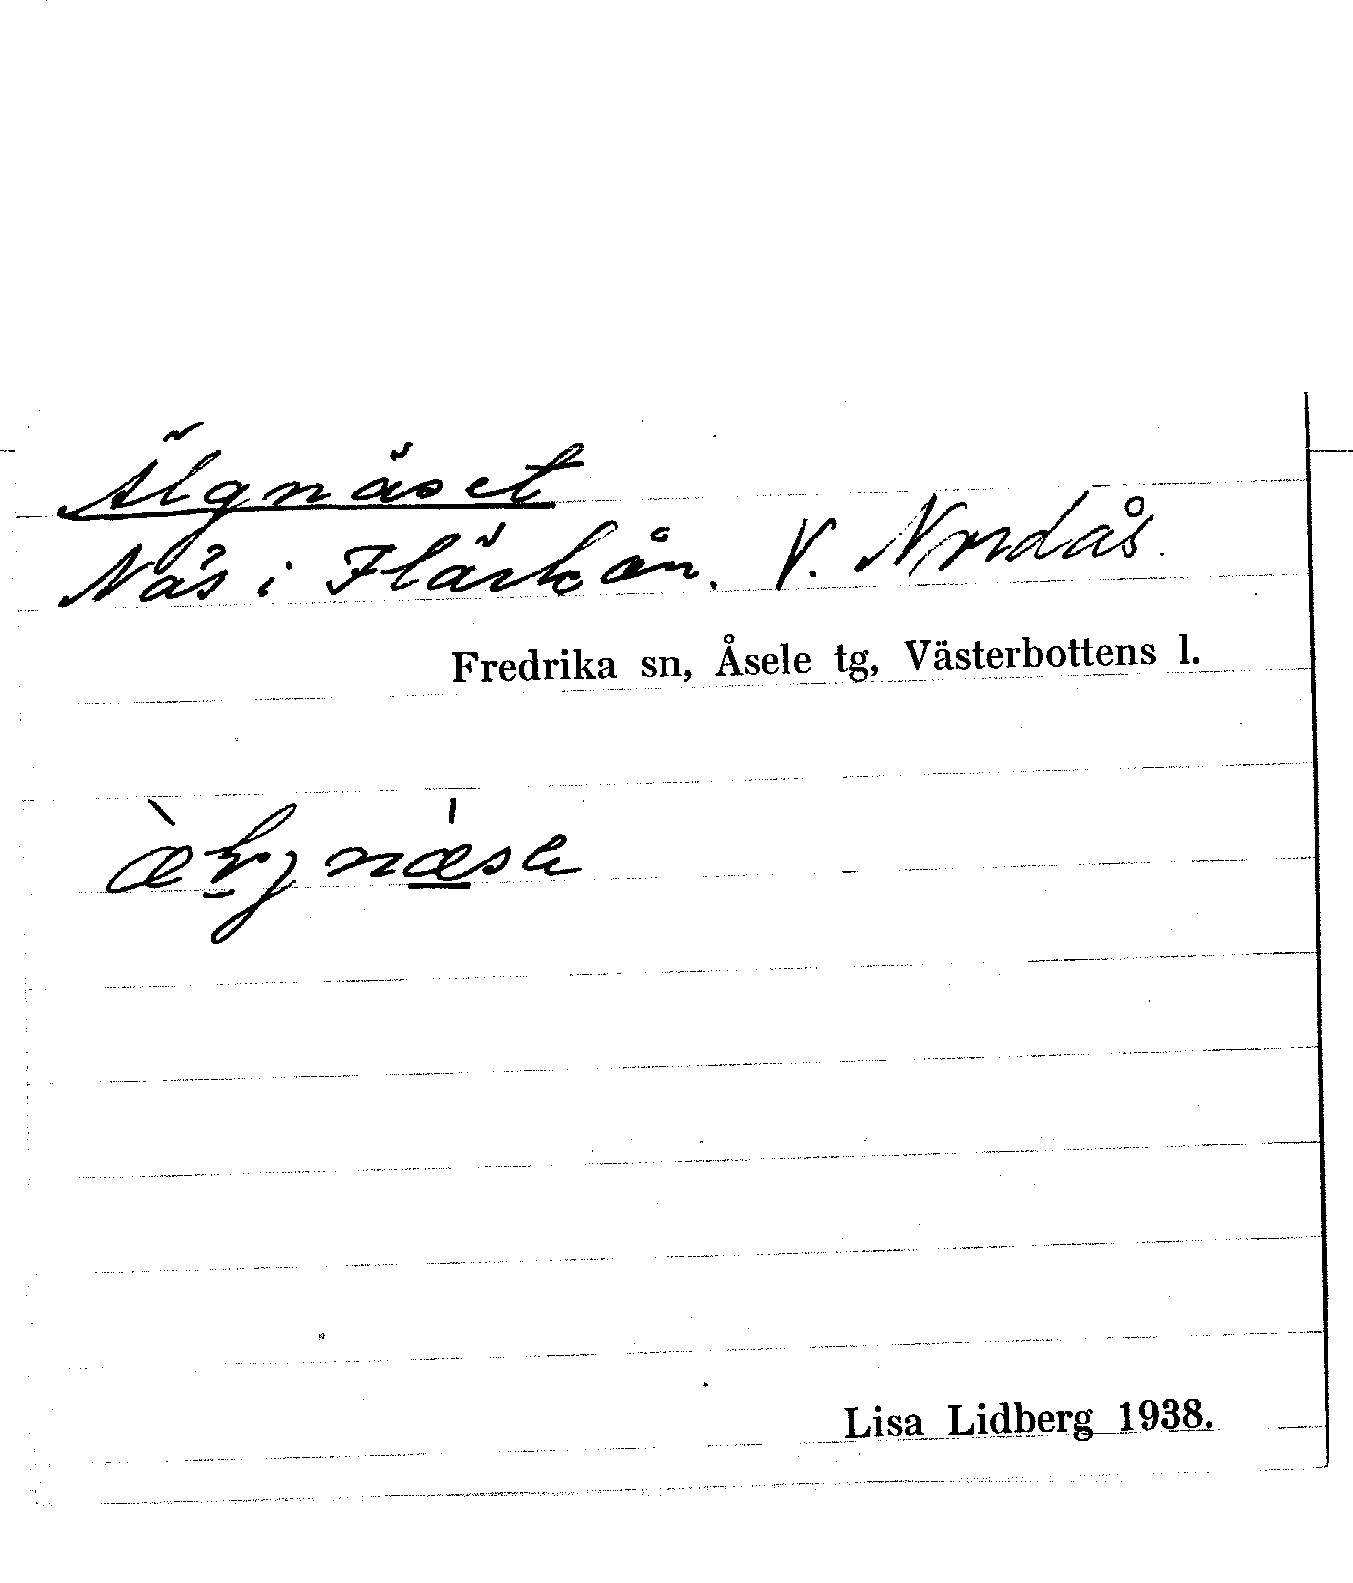 Älgnäset
Näs i Flärkån. V. Nordås.
Fredrika sn, Åsele tg, Västerbottens l.
Lisa Lidberg 1938.